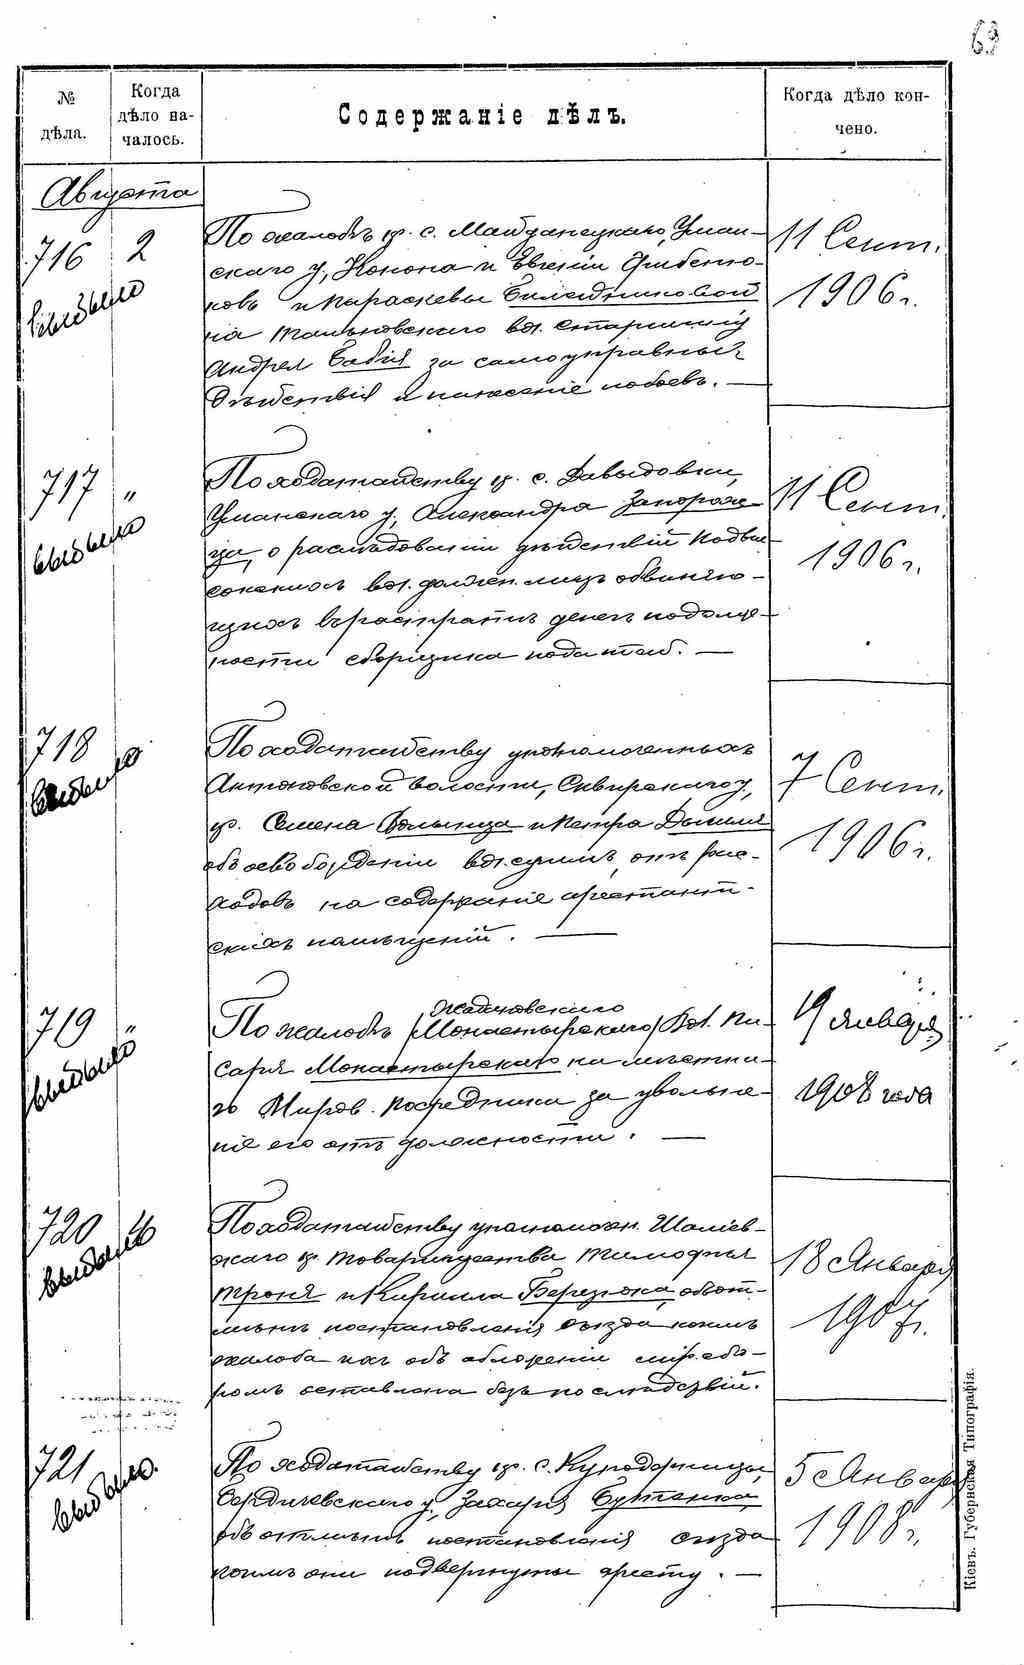 69
№ дѣла.
Когда дѣло на-чалось.
Содержаніе дѣлъ.
Когда дѣло кон-чено.
Августа
716 2
выбыло
По жалобѣ кр. с. Майданецкаго, Уман-
скаго у., Конона и Евгеніи Грибеню-
ковъ и Параскевы
на Тальновскаго вол. старшину
Андрея Бабія за самоуправныя
дѣйствія и нанесеніе побоевъ. —
11 Сент.
1906 г.
717 "
выбыло
По ходатайству кр. с. Давыдовки,
Уманскаго у., Александра Запорож-
ца, о разслѣдованіи дѣйствій Подвы-
соцкихъ вол. должн. лицъ обвиняю-
щихъ въ растратѣ денегъ по долж-
ности сборщика податей. —
11 Сент.
1906 г.
718
выбыло
По ходатайству уполномоченныхъ
Антоновской волости, Сквирскаго у.,
кр. Семена Волынца и Петра
объ освобожденіи вол. суммъ отъ рас-
ходовъ на содержаніе арестант-
скихъ помѣщеній. —
7 Сент.
1906 г.
719 "
выбыло
Жадьковскаго
По жалобѣ (Монастырскаго) Вол. Пи-
саря Монастырскаго на мѣстна-
го Миров. Посредника за увольне-
ніе его отъ должности. —
19 Января
1908 года
720 4
выбыло
По ходатайству уполномочен. Шаліев-
скаго кр. товарищества Тимофея
Троня и Кирилла Березюка, объ от-
мѣнѣ постановленія съѣзда коимъ
жалоба ихъ объ обложеніи мір. сбо-
ромъ оставлена безъ послѣдствій.
18 Января
1907 г.
721
выбыло.
По ходатайству кр. с. Куподерницы,
Бердичевскаго у., Захарія Бутенка,
объ отмѣнѣ постановленія съѣзда
коимъ они подвергнуты аресту. —
5 Января
1908 г.
Кіевъ. Губернская Типографія.